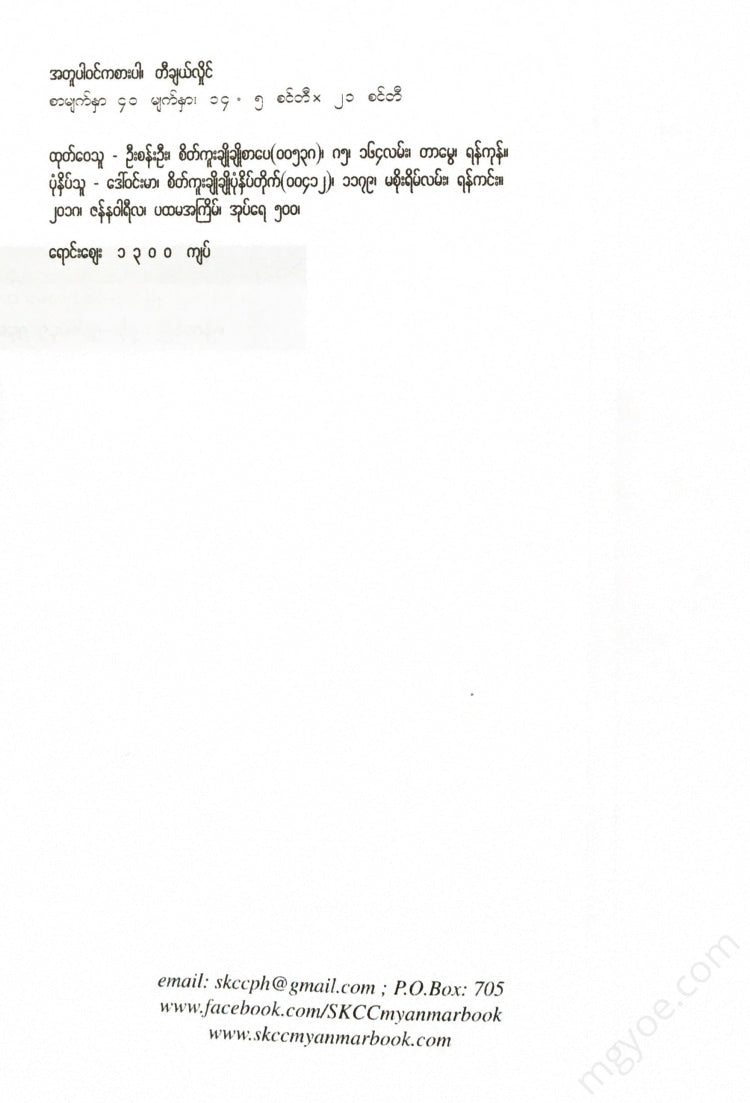 အတူပါဝင်ကစားပါ၊ တီချယ်လှိုင်
စာမျက်နှာ ၄၀ မျက်နှာ၊ ၁၄ . ၅ စင်တီ × ၂၁ စင်တီ
ထုတ်ဝေသူ - ဦးစန်းဦး၊ စိတ်ကူးချိုချိုစာပေ(၀၀၅၃၈)၊ ဂ၅၊ ၁၆၄လမ်း၊ တာမွေ၊ ရန်ကုန်။
ပုံနှိပ်သူ - ဒေါ်ဝင်းမာ၊ စိတ်ကူးချိုချိုပုံနှိပ်တိုက်(၀၀၄၁၂)၊ ၁၁၇၉၊ မစိုးရိမ်လမ်း၊ ရန်ကင်း။
၂၀၁၈၊ ဇန်နဝါရီလ၊ ပထမအကြိမ်၊ အုပ်ရေ ၅၀၀၊
ရောင်းဈေး ၁ ၃ ၀ ၀ ကျပ်
email: skccph@gmail.com ; P.O.Box: 705
www.facebook.com/SKCCmyanmarbook
www.skccmyanmarbook.com
mgyoe.com